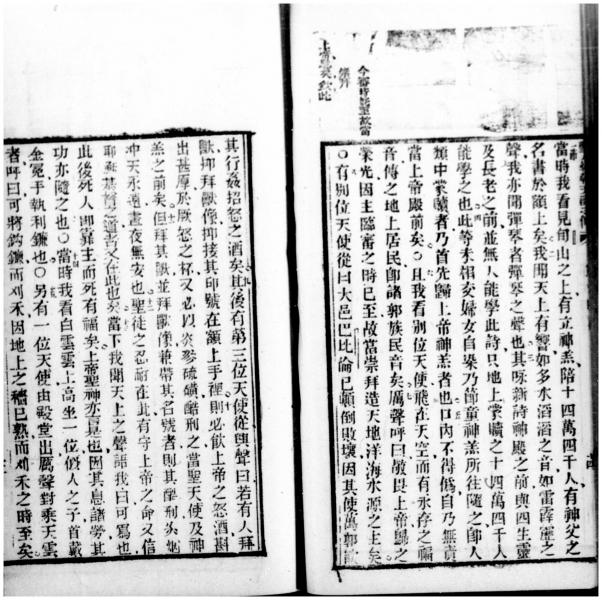 今審時迄至故當
當時我看見旬山之上有立神羔陪十四萬四千人有神父之
名書於額上矣我聞天上有響如多水滔滔之音如雷霹靂之
聲我亦聞彈琴者彈琴之聲也其咏新詩神殿之前與四生靈
及長老之前並無人能學此詩只地上蒙贖之十四萬四千人
能學之也此等未相交婦女自染乃節童神羔所往隨之卽人
類中蒙贖者乃首先歸上帝神羔者也口內不得僞自乃無責
當上帝殿前矣○且我看別位天使飛在天空而有永存之福
音傳之地上居民卽諸郭族民音矣厲聲呼曰敬畏上帝歸之
榮光因主臨審之時已至故當崇拜造天地洋海水源之主矣
○有別位天使從曰大邑巴比倫已頓倒敗壞因其使萬郭飲
其行姦招怒之酒矣其後有第三位天使從與聲曰若有人拜
獸抑拜獸像抑接其印號在額上手裡則必飲上帝之怒酒斟
出甚厚於厥怒之杯又必以炎爹硫磺酷刑之當聖天使及神
羔之前矣但拜其獸並拜獸像兼帶其名號者則其酷刑炎焔
冲天永遠晝夜無安也聖徒之忍耐在此有守上帝之命又信
耶穌基督之道者又在此也矣當下我聞天上之聲語我曰可寫也
此後死人卽靠主而死有福矣上帝聖神亦言是也因其息諸勞其
功亦隨之也○當時我看白雲雲上高坐一位似人之子首戴
金冕手執利鐮也○另有一位天使由殿堂出厲聲對乘天雲
者呼曰可將鈎鐮而刈禾因地上之穡已熟而刈禾之時至矣